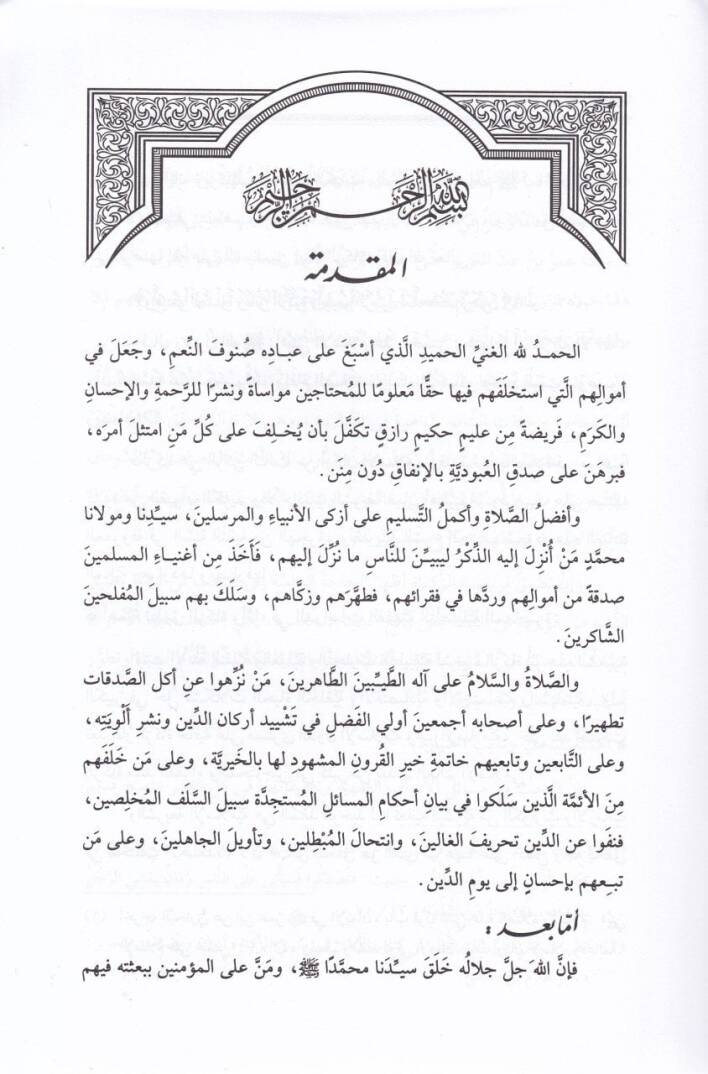 بسم الله الرحمن الرحيم
المقدمة
الحمـدُ لله الغنيِّ الحميدِ الَّذي أسْبَغَ على عبـادِه صُنوفَ النِّعمِ، وجَعَلَ في
أموالِهم الَّتي استخلَفَهم فيها حقًّا معلومًا للمُحتاجين مواساةً ونشرًا للرَّحمةِ والإحسانِ
والكَرَمِ، فريضةً مِن عليمٍ حكيمٍ رازقٍ تكفَّلَ بأن يُخـلِفَ على كُلِّ مَنِ امتثلَ أمرَه،
فبرهَنَ على صدقِ العُبوديَّةِ بالإنفاقِ دُون مِنَن.
وأفضلُ الصَّلاةِ وأكملُ التَّسليمِ على أزكى الأنبياءِ والمرسلينَ، سيِّـدِنا ومولانا
محمَّدٍ مَنْ أُنزِلَ إليه الذِّكْرُ ليبيِّـنَ للنَّاسِ ما نُزِّلَ إليهم، فَأَخَذَ مِن أغنيـاءِ المسلمينَ
صدقةً من أموالِهم وردَّها في فقرائهم، فطهَّرَهم وزكَّاهم، وسَلَكَ بهم سبيلَ المُفلحينَ
الشَّاكرينَ.
والصَّلاةُ والسَّلامُ على آله الطَّيِّـبينَ الطَّاهرينَ، مَنْ نُزِّهوا عن أكلِ الصَّدقات
تطهيرًا، وعلى أصحابه أجمعينَ أولي الفَضلِ في تَشْييد أركان الدِّين ونشرِ ألْوِيَتِه،
وعلى التَّابعين وتابعيهم خاتمةِ خيرِ القُرونِ المشهودِ لها بالخَيريَّة، وعلى مَن خَلَفَهم
مِنَ الأئمَّة الَّذين سَلَكوا في بيان أحكامِ المسائلِ المُستجدَّة سبيلَ السَّلَف المُخلِصين،
فنفَوا عن الدِّين تحريفَ الغالينَ، وانتحالَ المُبْطِلين، وتأويلَ الجاهلينَ، وعلى مَن
تبـعهم بإحسانٍ إلى يومِ الدِّين.
أمّا بعد :
فإنَّ اللهَ جلَّ جلالُه خَلَقَ سيـدَنا محمَّدًا ﷺ، ومَنَّ على المؤمنين ببعثته فيهم